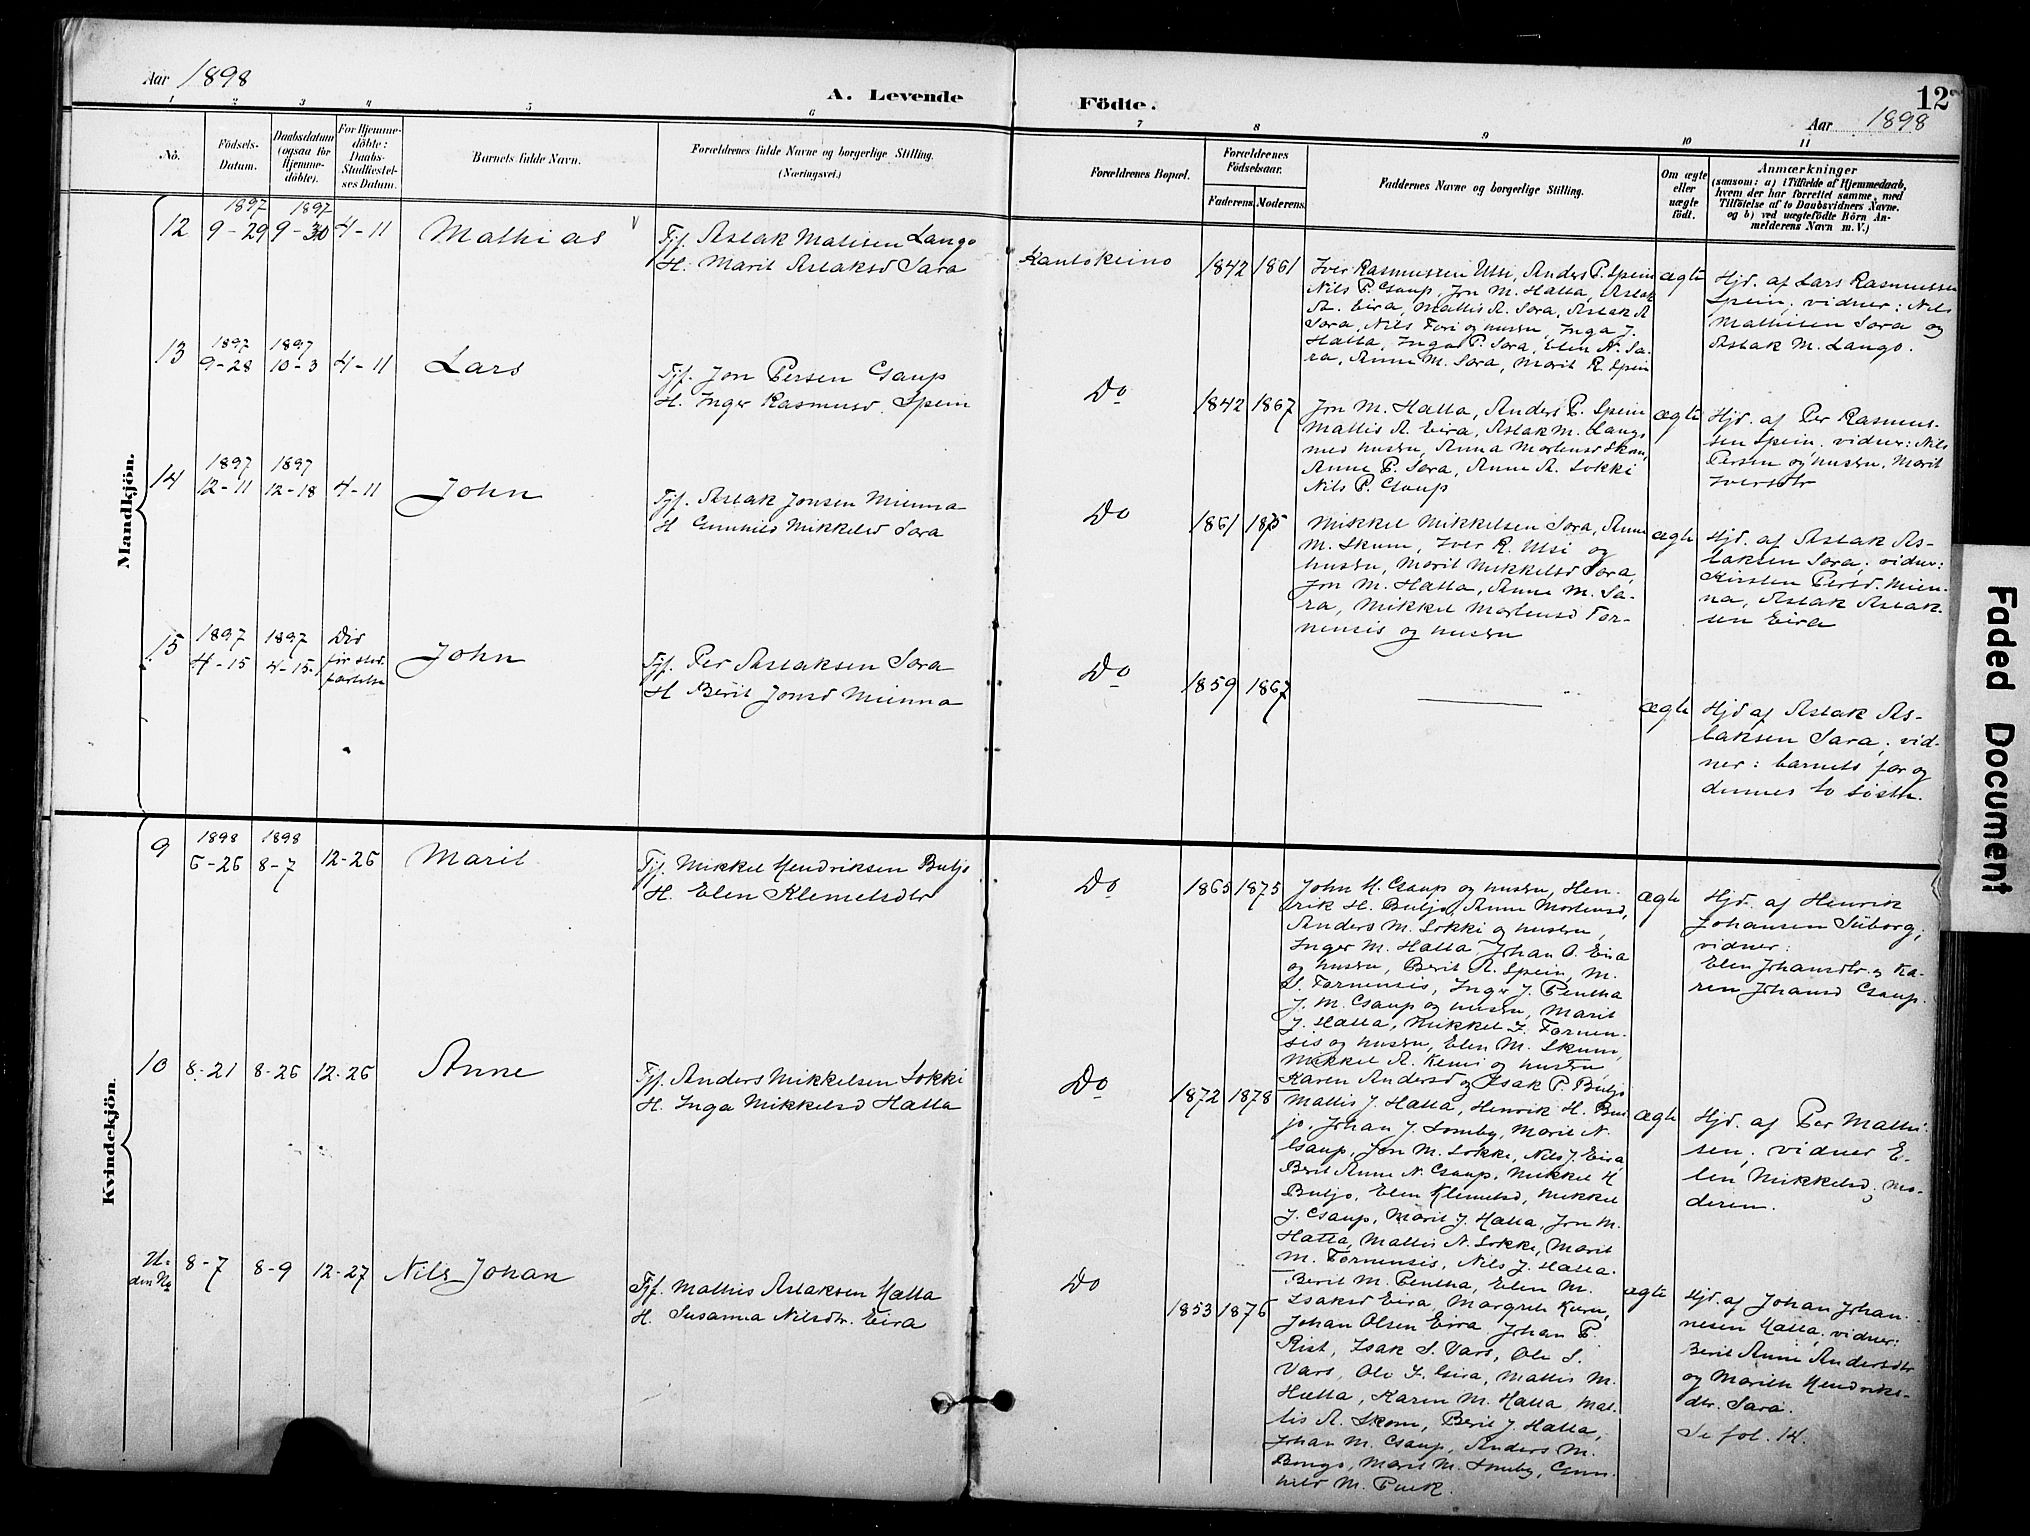 Aar 1898
A. Levende Födte.
12
Aar 1898
1 2 3 4 5 6 7 8 9 10 11
No.
Födsels-Datum.
Daabsdatum (ogsaa for Hjemmedöbte).
For Hjemmedöbte: Daabs-Stadfæstelses Datum.
Barnets fulde Navn.
Forældrenes fulde Navne og borgerlige Stilling. (Næringsvei.)
Forældrenes Bopæl.
Forældrenes Födselsaar.
Faderens. Moderens.
Faddernes Navne og borgerlige Stilling.
Om ægte eller uægte födt.
Anmærkninger
(saasom: a) i Tilfælde af Hjemmedaab, hvem der har forrettet samme, med Tilföielse af to Daabsvidners Navne. og b) ved uægtefödte Börn Anmelderens Navn m. V.)
Mandkjön.
12 1897 9-29 1897 9-30 4-11 Mathias
Fjf. Aslak Matisen Lango
H. Marit Aslaksd Sara
Kautokeino 1842 1861
Iver Rasmussen Utsi, Anders P. Spein
Nils P. Gaup, Jon M. Hætta, Aslak
A. Eira, Mattis A. Sara, Aslak A
Sara, Nils Fori og hustru, Inga J.
Hætta, Inga P. Sara, Elen N. Sa-
ra, Anne M. Sara, Marit R. Spein
ægte
Hjd. af Lars Rasmussen
Spein, vidner: Nils
Mathisen Sara og
Aslak M. Lango.
13 1897 9-28 1897 10-3 4-11 Lars
Fjf. Jon Persen Gaup
H. Inger Rasmusd. Spein
Do 1842 1867
Jon M. Hætta, Anders P. Spein
Mattis A. Eira, Aslak M. Lango
med hustru, Anna Mortensd Skum,
Anne P. Sara, Anne A. Lokki
Nils P. Gaup
ægte
Hjd. af Per Rasmus-
sen Spein. vidner: Nils
Persen og hustru, Marit
Iversdtr
14 1897 12-11 1897 12-18 4-11 John
Fjf. Aslak Jonsen Mienna
H Gunhild Mikkelsd Sara
Do 1861 1875
Mikkel Mikkelsen Sara, Anne
M. Skum, Iver R. Utsi og
hustru, Marit Mikkelsd Sara,
Jon M. Hætta, Anne M. Sa-
ra, Mikkel Mortensd Tor-
nensis og hustru
ægte
Hjd. af Aslak As-
laksen Sara, vidner:
Kirsten Persd. Mien-
na, Aslak Aslak-
sen Eira
15 1897 4-15 1897 4-15 Død før stadfæstelse John
Fjf. Per Aslaksen Sara
H Berit Jonsd Mienna
Do 1859 1867
ægte
Hjd af Aslak As-
laksen Sara, vid-
ner: barnets far og
dennes to søstre.
Kvindekjön.
9 1898 6-26 1898 8-7 12-26 Marit
Fjf. Mikkel Hendriksen Buljo
H. Elen Klemetsdtr
Do 1865 1875
John H. Gaup og hustru, Hen-
rik H. Buljo, Anne Mortensd,
Anders M. Lokki og hustru,
Inger M. Hætta, Johan O. Eira
og hustru, Berit A. Spein, M.
S. Tornensis, Inger J. Pentha
J. M. Gaup og hustru, Marit
J. Hætta, Mikkel I. Tornen-
sis og hustru, Elen M. Skum,
Mikkel A. Kemi og hustru,
Karen Andersd og Isak P. Buljo
ægte
Hjd. af Henrik
Johansen Siiborg,
vidner:
Elen Johansdtr. og Ka-
ren Johansd Gaup.
10 8-21 8-26 12-26 Anne
Fjf. Anders Mikkelsen Lokki
H. Inga Mikkelsd Hætta
Do 1872 1878
Mattis J. Hætta, Henrik H. Bul-
jo, Johan J. Somby, Marit N.
Gaup, Jon M. Lokke, Nils J. Eira,
Berit Anne N. Gaup, Mikkel H
Buljo, Elen Klemetsd, Mikkel
J. Gaup, Marit J. Hætta, Jon M.
Hætta, Mattis N. Lokke, Marit
M. Tornensis, Nils J. Hætta.
ægte
Hjd. af Per Mathi-
sen, vidner E-
len Mikkelsd, Mo-
deren.
U-
den No 8-7 8-9 12-27 Nils Johan
Fjf. Mathis Aslaksen Hætta
H. Susanna Nilsdtr. Eira
Do 1853 1876
Berit M. Pentha, Elen M.
Isaksd Eira, Margreth Kurn,
Johan Olsen Eira, Johan P
Rist, Isak S. Vars, Ole S.
Vars, Ole I. Eira, Mattis M.
Hætta, Karen M. Hætta, Mat-
tis A. Skum, Berit J. Hætta,
Johan M. Gaup, Anders M.
Bongo, Marit M. Somby, Gun-
hild M. Pulk.
ægte
Hjd. af Johan Johan-
nesen Hætta, vidner:
Berit Anne Andersdtr
og Marith Hendriks-
dtr. Sara.
Se fol. 14.
Faded Document